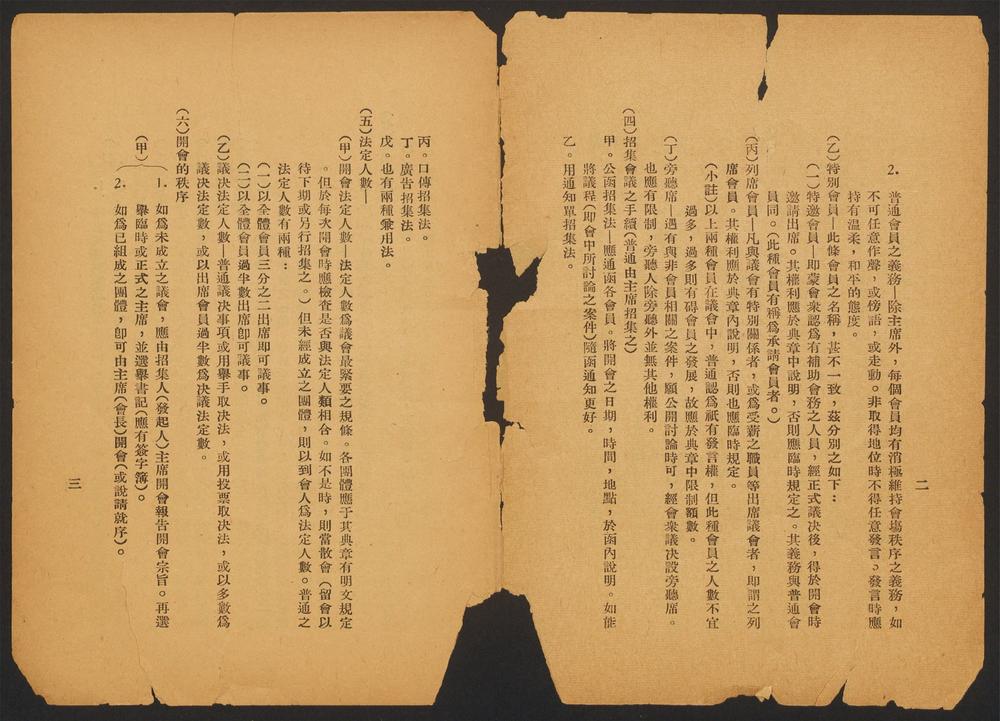 2. 普通會員之義務—除主席外，每個會員均有消極維持會塲秩序之義務，如
不可任意作聲，或傍語，或走動。非取得地位時不得任意發言。發言時應
持有溫柔，和平的態度。
(乙)特別會員—此條會員之名稱，甚不一致，茲分別之如下：
(一)特邀會員—即蒙會衆認爲有補助會務之人員，經正式議决後，得於開會時
邀請出席。其權利應於典章中說明，否則應臨時規定之。其義務與普通會
員同。(此種會員有稱爲承請會員者。)
(丙)列席會員—凡與議會有特別關係者，或爲受薪之職員等出席議會者，即謂之列
席會員。其權利應於典章內說明，否則也應臨時規定。
(小註)以上兩種會員在議會中，普通認爲祇有發言權，但此種會員之人數不宜
過多，過多則有碍會員之發展，故應於典章中限制額數。
(丁)旁聽席—遇有與非會員相關之案件，願公開討論時可，經會衆議决設旁聽席。
也應有限制，旁聽人除旁聽外並無其他權利。
(四)招集會議之手續(普通由主席招集之)
甲。公函招集法—應通函各會員。將開會之日期，時間，地點，於函內說明。如能
將議程(即會中所討論之案件)隨函通知更好。
乙。用通知單招集法。
二
丙。口傳招集法。
丁。廣告招集法。
戊。也有兩種兼用法。
(五)法定人數—
(甲)開會法定人數—法定人數爲議會最緊要之規條。各團體應于其典章有明文規定
。但於每次開會時應檢查是否與法定人類相合。如不是時，則當散會(留會以
待下期或另行招集之。)但未經成立之團體，則以到會人爲法定人數。普通之
法定人數有兩種：
(一)以全體會員三分之二出席即可議事。
(二)以全體會員過半數出席卽可議事。
(乙)議决法定人數—普通議决事項或用舉手取决法，或用投票取决法，或以多數爲
議决法定數，或以出席會員過半數爲决議法定數。
(六)開會的秩序
(甲) 1. 如爲未成立之議會，應由招集人(發起人)主席開會報告開會宗旨。再選
舉臨時或正式之主席，並選舉書記(應有簽字簿)。
2. 如爲已組成之團體，卽可由主席(會長)開會(或說請就序)。
三